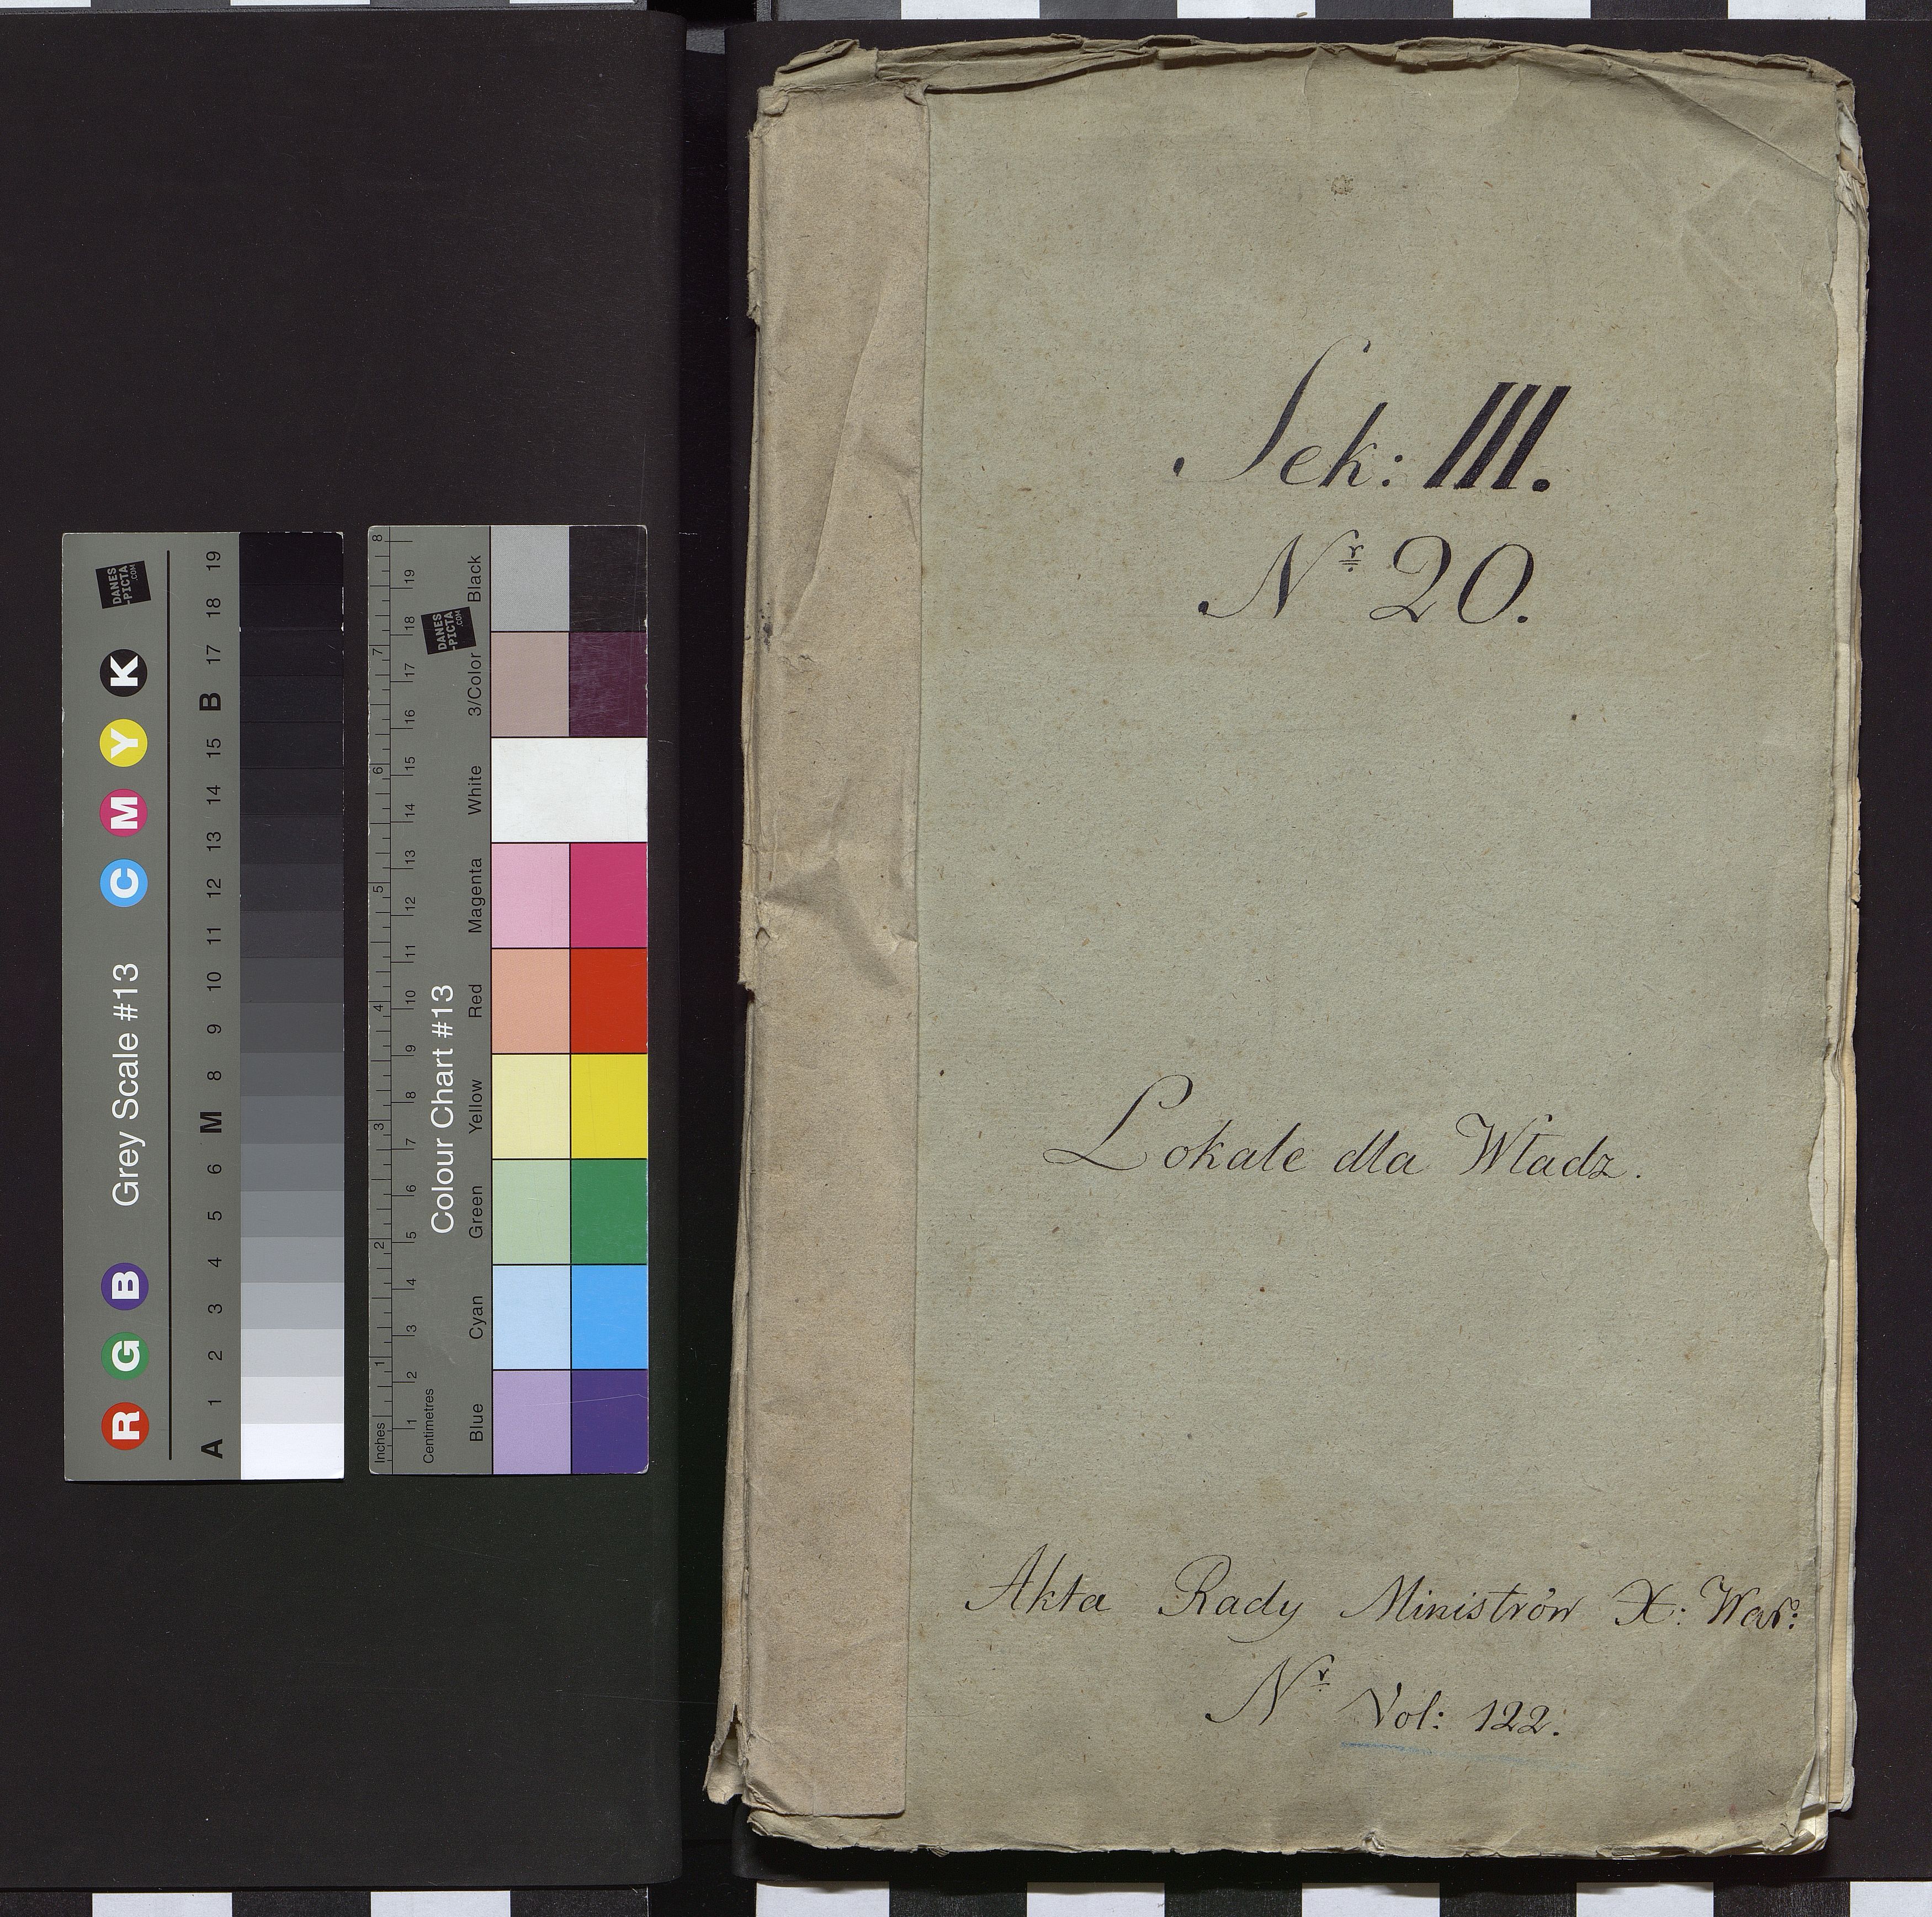 Grey Scale #13
R G B C M Y K
A 1 2 3 4 5 6 M 8 9 10 11 12 13 14 15 B 17 18 19
DANES
-PICTA
.COM
Colour Chart #13
Blue Cyan Green Yellow Red Magenta White 3/Color Black
Inches 1 2 3 4 5 6 7 8
Centimetres 1 2 3 4 5 6 7 8 9 10 11 12 13 14 15 16 17 18 19
DANES
-PICTA
.COM
Sek: III.
Nr 20.
Lokale dla Władz.
Akta Rady Ministrów X: War:
Nr Vol: 122.